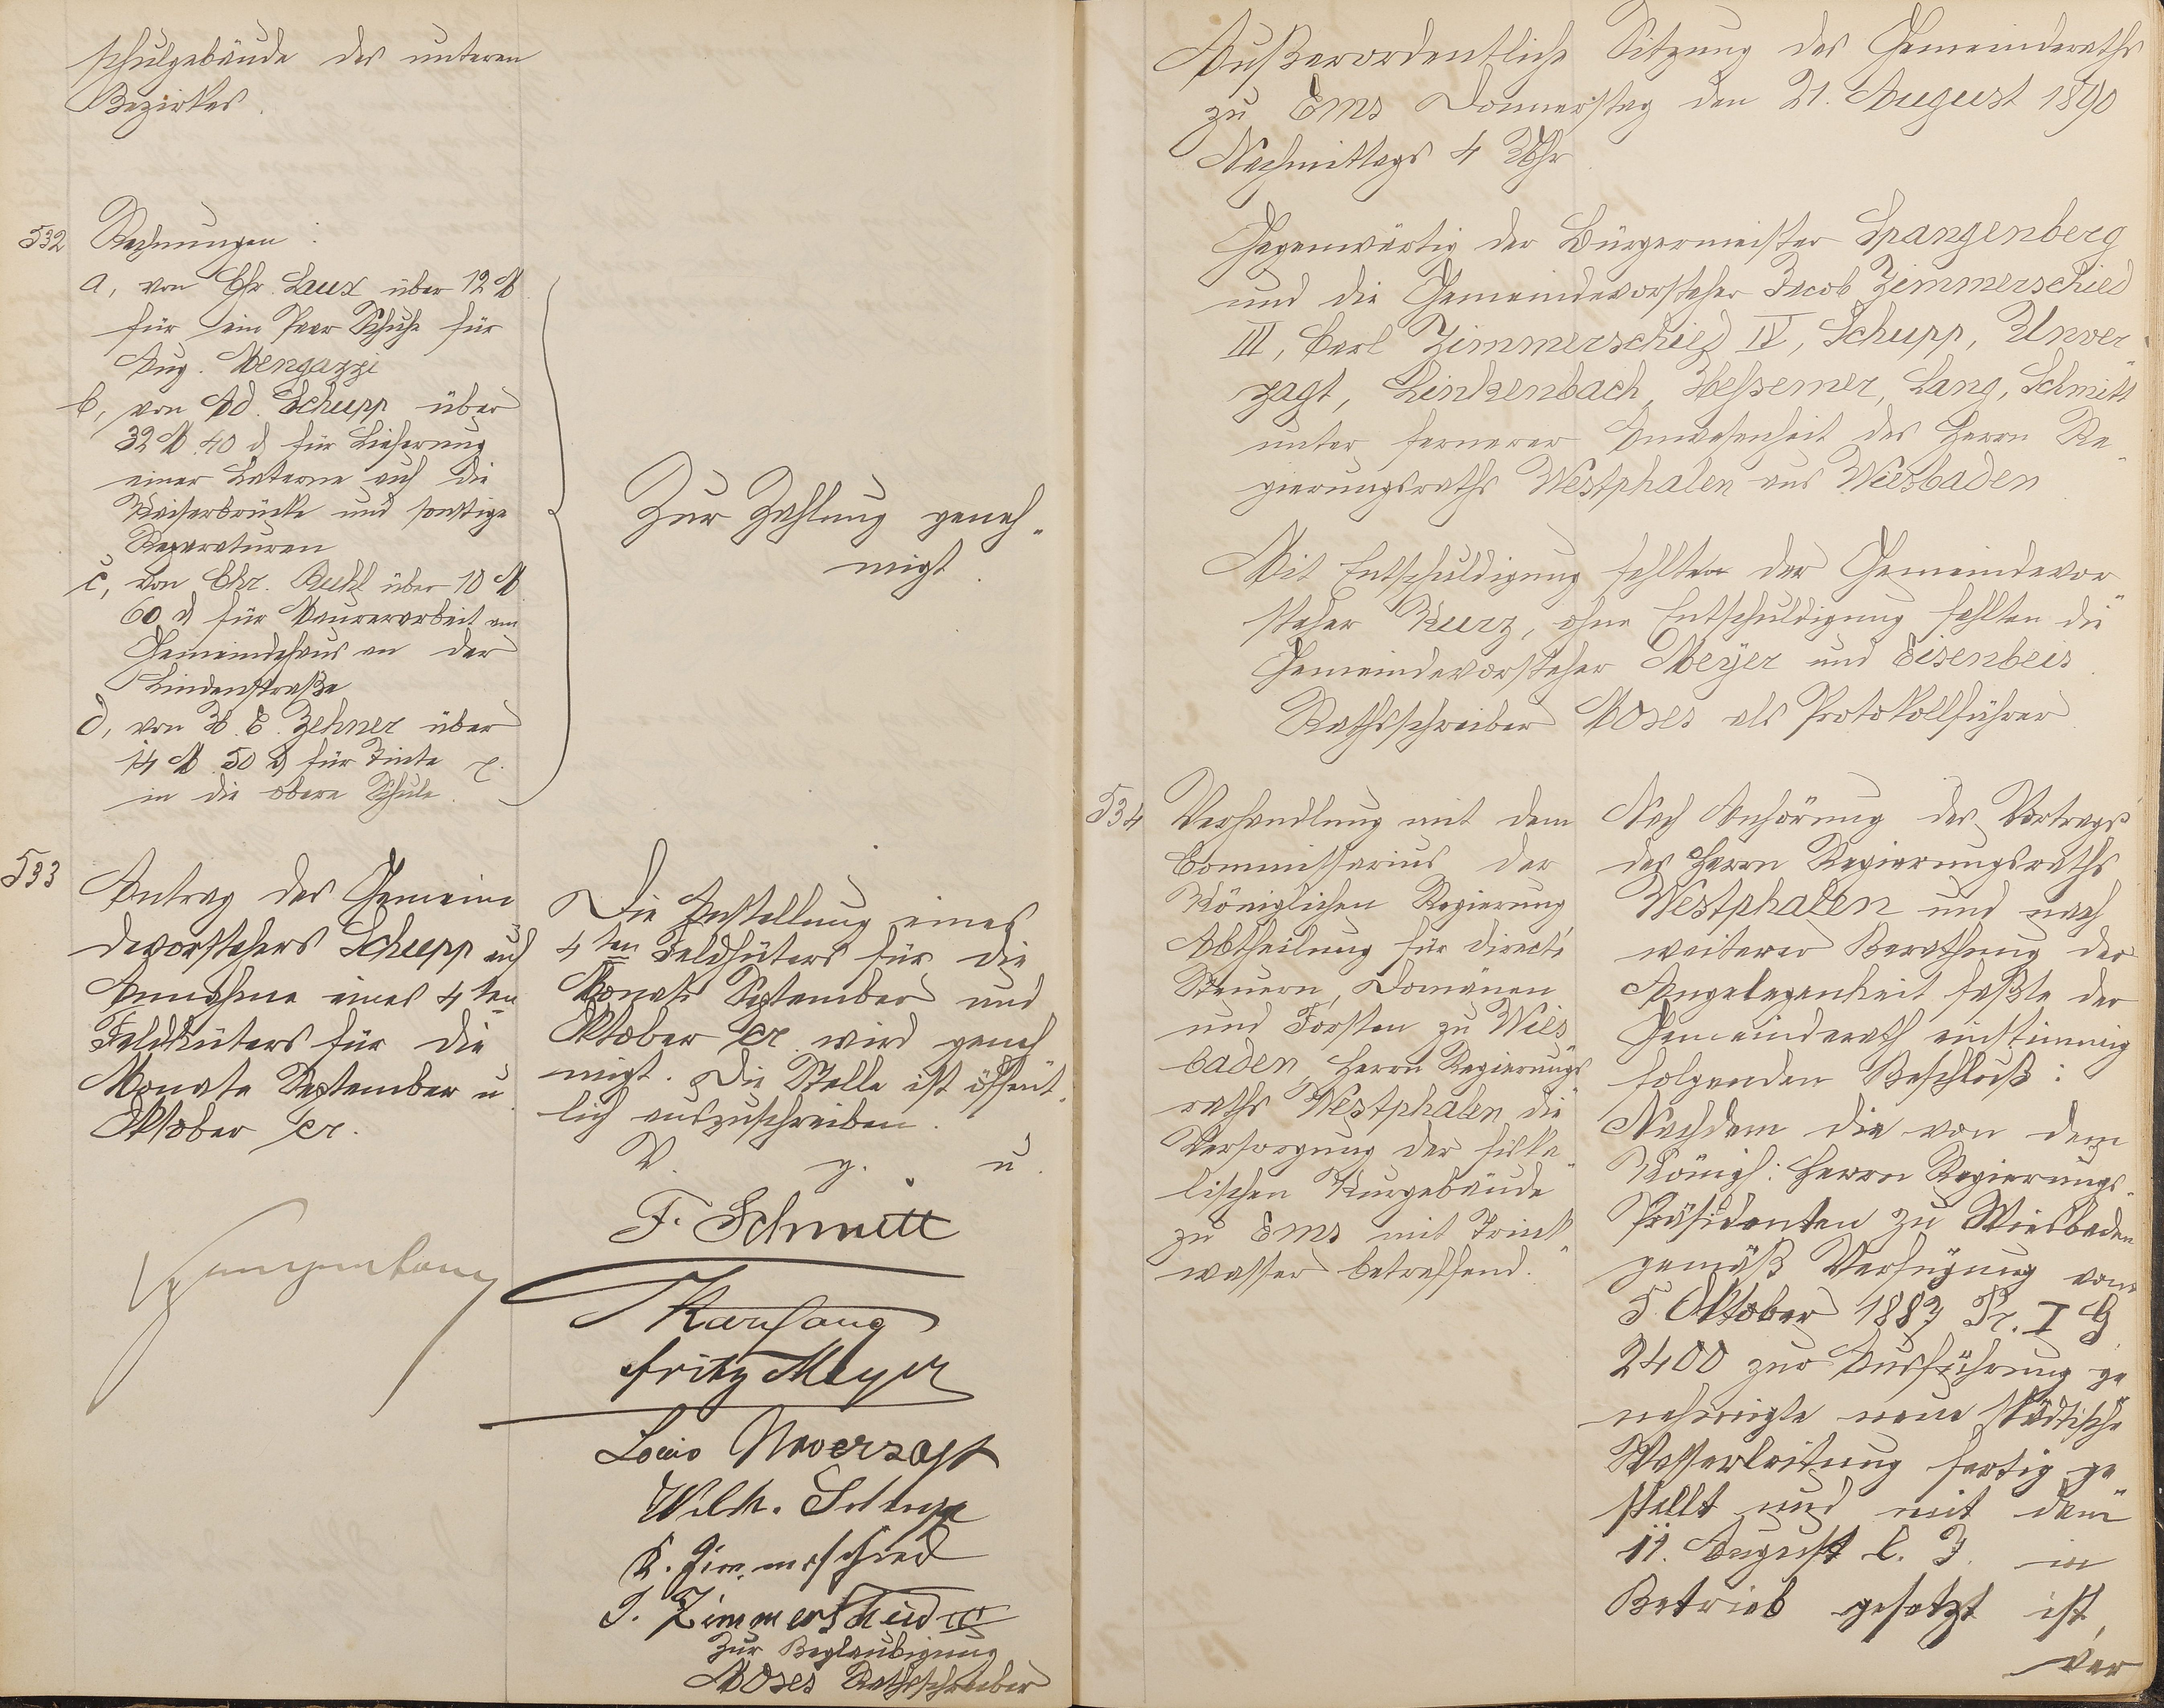 schulgebäude des unteren
Bezirkes.
532 Rechnungen:
a, von Chr. Laux über 12 M
für ein Paar Schuhe für
Aug. Mengazzi
b, von Ad. Schupp über
32 M 40 d für Lieferung
einer Laterne auf die
Kaiserbrücke und sonstige
Reparaturen
c, von Chr. Buhl über 10 M
60 d für Maurerarbeit am
Gemeindehaus an der
Lindenstraße
d, von H. E. Zehner über
14 M 50 d für Tinte
in die obere Schule.
Zur Zahlung geneh-
migt.
533 Antrag des Gemein
devorstehers Schupp auf
Annahme eines 4ten
Feldhüters für die
Monate September u
Oktober cr.
Die Anstellung eines
4ten Feldhüters für die
Monate September und
Oktober cr. wird geneh
migt. Die Stelle ist öffent-
lich auszuschreiben.
V. g. u.
Spangenberg
F. Schmitt
Fritz Meyer
Louis Unverzagt
Wilh. Schupp
K. Zimmerschied
J. Zimmerschied III
Zur Beglaubigung
Moses Rathsschreiber
Außerordentliche Sitzung des Gemeinderaths
zu Ems Donnerstag den 21. August 1890
Nachmittags 4 Uhr
Gegenwärtig der Bürgermeister Spangenberg
und die Gemeindevorsteher Jacob Zimmerschied
III, Carl Zimmerschied IV, Schupp, Unver-
zagt, Linkenbach, Hessemer, Lang, Schmitt
unter fernerer Anwesenheit des Herrn Re-
gierungsraths Westphalen aus Wiesbaden
Mit Entschuldigung fehlten der Gemeindevor
steher Kurz, ohne Entschuldigung fehlten die
Gemeindevorsteher Meyer und Eisenbeis
Rathsschreiber Moses als Protokollführer
534 Verhandlung mit dem
Commissarius der
Königlichen Regierung
Abtheilung für directe
Steuern, Domänen
und Forsten zu Wies-
baden, Herrn Regierungs-
raths Westphalen die
Versorgung der fiska-
lischen Kurgebäude
zu Ems mit Trink-
wasser betreffend.
Nach Anhörung des Vortrags
des Herrn Regierungsraths
Westphalen und nach
weiterer Berathung der
Angelegenheit faßte der
Gemeinderath einstimmig
folgenden Beschluß:
Nachdem die von dem
Königl: Herrn Regierungs-
Präsidenten zu Wiesbaden
gemäß Verfügung vom
5. Oktober 1887 Pr. I G
2400 zur Ausführung ge
nehmigte neue städtische
Wasserleitung fertig ge
stellt und mit dem
11. August l. J. in
Betrieb gesetzt ist,
ver